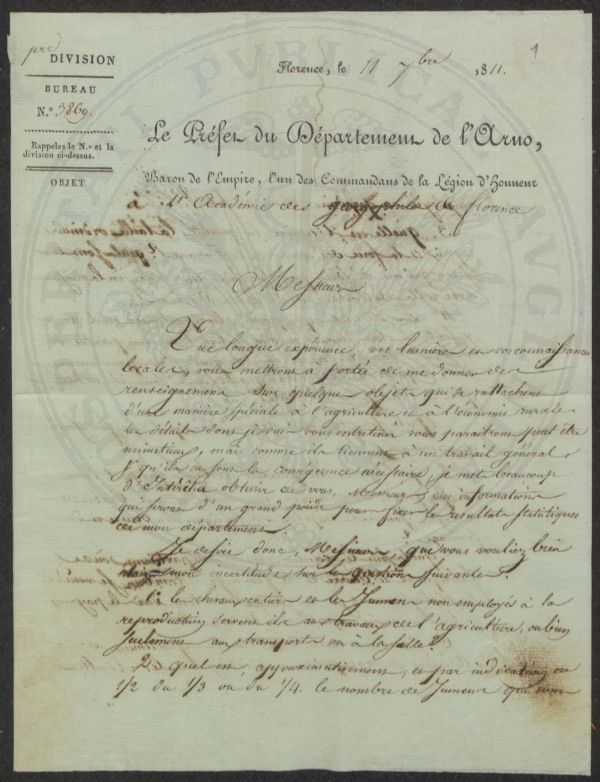 1
pre DIVISION
BUREAU
N.° 3869.
Rappeler le N.° et la
division ci-dessus.
OBJET
Florence, le 11 7bre 1811.
Le Préfet du Département de l'Arno,
Baron de l'Empire, l'un des Commandans de la Légion d'Honneur
à L'Académie des georgophiles de florence
Messieurs
Une longue expérience, vos lumières et vos connaissances
locales, vous mettront à portée de me donner des
renseignemens sur quelques objets qui se rattachent
d'une manière spéciale à l'agriculture et à l'économie rurale.
Les détails dont je vais vous entretenir vous paraitront peut être
minutieux, mais comme ils tiennent à un travail général,
et qu'ils en sont la conséquence nécessaire, je mets beaucoup
d'intérêt à obtenir de vous, Messieurs, des informations
qui seront d'un grand poids pour fixer les resultats statistiques
de mon département.
Je desire donc, Messieurs, que vous vouliez bien
mon incertitude sur les questions suivantes.
1.° les chevaux entiers et les Jumens non employés à la
reproduction servent ils aux travaux de l'agriculture, ou bien
seulement aux transports ou à la selle?
2.° quel est, approximativement, et par indication en
1/2 du 1/3 ou du 1/4. le nombre de Jumens qui sont